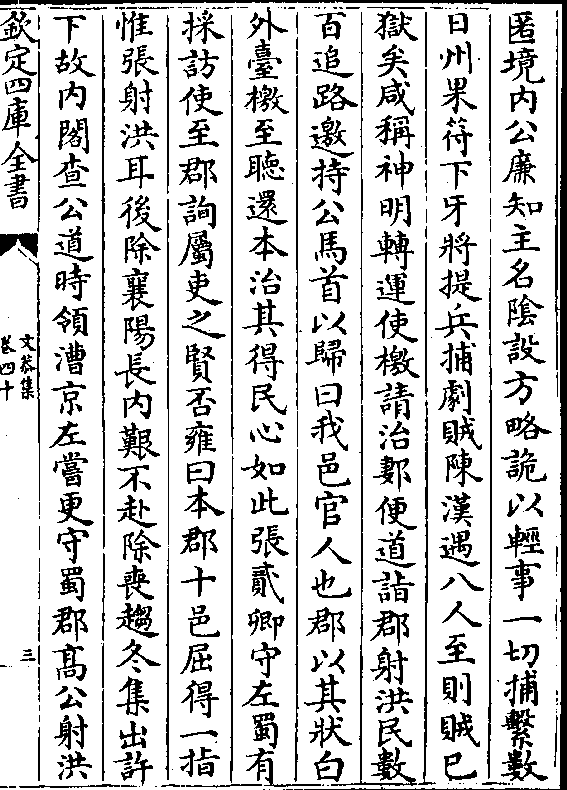 匿境内公廉知主名隂設方略詭以輕事一切捕繫數
日州果符下牙將提兵捕劇賊陳漢遇八人至則賊已
獄矣咸稱神明轉運使檄請治郪便道詣郡射洪民數
百追路邀持公馬首以歸曰我邑官人也郡以其狀白
外臺檄至聽還本治其得民心如此張貳卿守左蜀有
採訪使至郡詢屬吏之賢否雍曰本郡十邑屈得一指
惟張射洪耳後除襄陽長内艱不赴除喪趨冬集出許
下故内閣查公道時領漕京左嘗更守蜀郡髙公射洪
欽定四庫全書
文恭集
卷四十
三